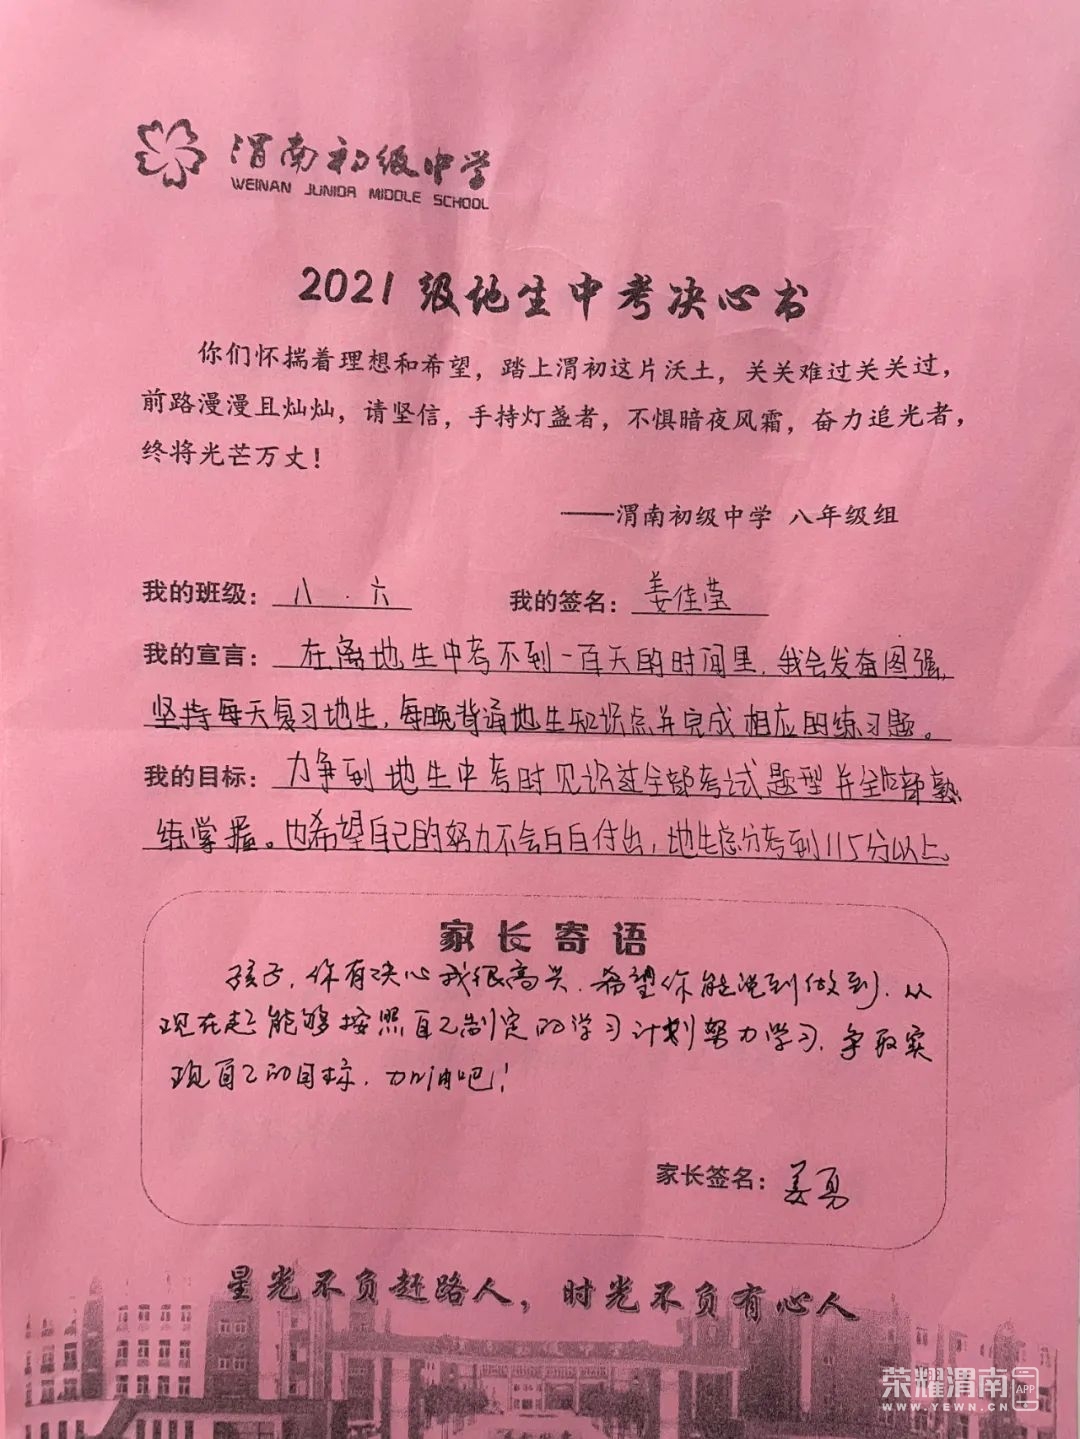 渭南初级中学
WEINAN JUNIOR MIDDLE SCHOOL
2021级地生中考决心书
你们怀揣着理想和希望，踏上渭初这片沃土，关关难过关关过，
前路漫漫且灿灿，请坚信，手持灯盏者，不惧暗夜风霜，奋力追光者，
终将光芒万丈！
——渭南初级中学 八年级组
我的班级：八.六 我的签名：姜佳莹
我的宣言：在离地生中考不到一百天的时间里，我会发奋图强，
坚持每天复习地生，每晚背诵地生知识点并完成相应的练习题。
我的目标：力争到地生中考时见识过全部考试题型并全部熟
练掌握。也希望自己的努力不会白白付出，地生总分考到115分以上。
家长寄语
孩子，你有决心我很高兴，希望你能说到做到，从
现在起能够按照自己制定的学习计划努力学习，争取实
现自己的目标，加油吧！
家长签名：姜勇
星光不负赶路人，时光不负有心人
荣耀渭南 APP
WWW.YEWN.CN